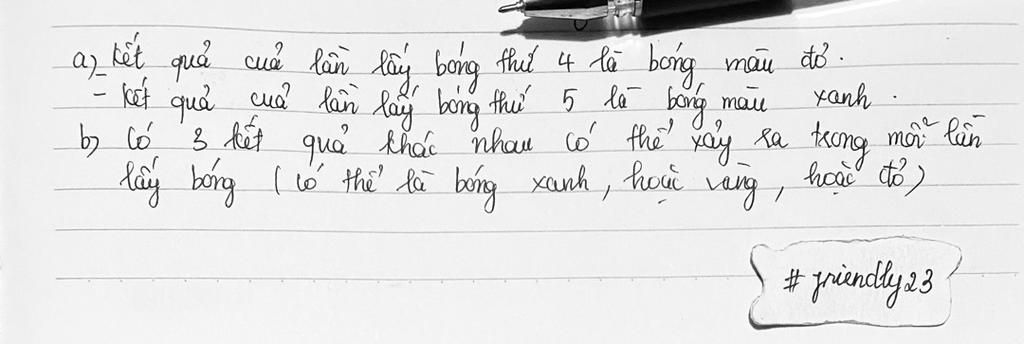 a) - kết quả cuả lần lấy bóng thứ 4 là bóng màu đỏ.
- kết quả cuả lần lấy bóng thứ 5 là bóng màu xanh.
b) Có 3 kết quả khác nhau có thể xảy ra trong mỗi lần
lấy bóng (có thể là bóng xanh, hoặc vàng, hoặc đỏ)
# friendly23